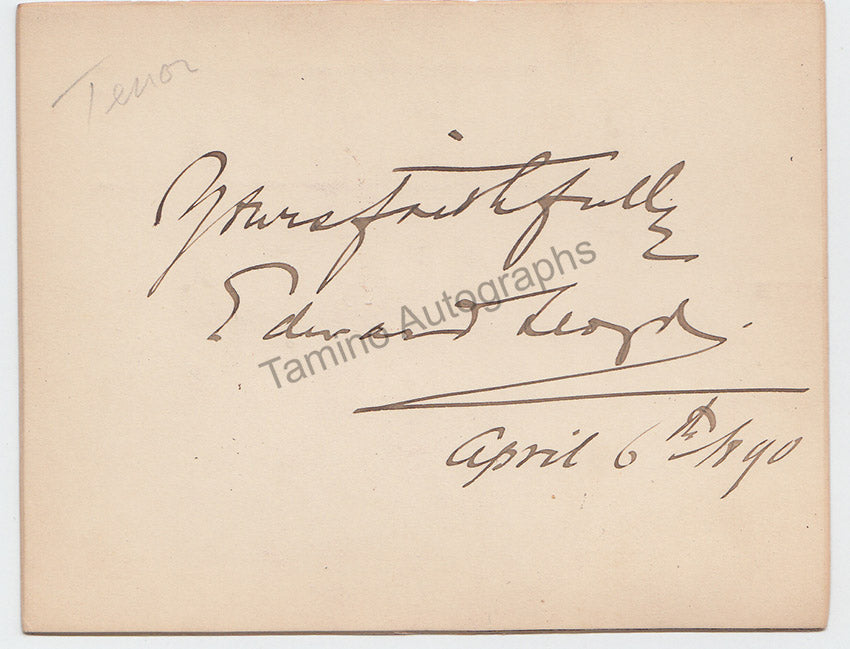 Tenor
Yours faithfully
Edward Lloyd.
Tamino Autographs
April 6th 1890